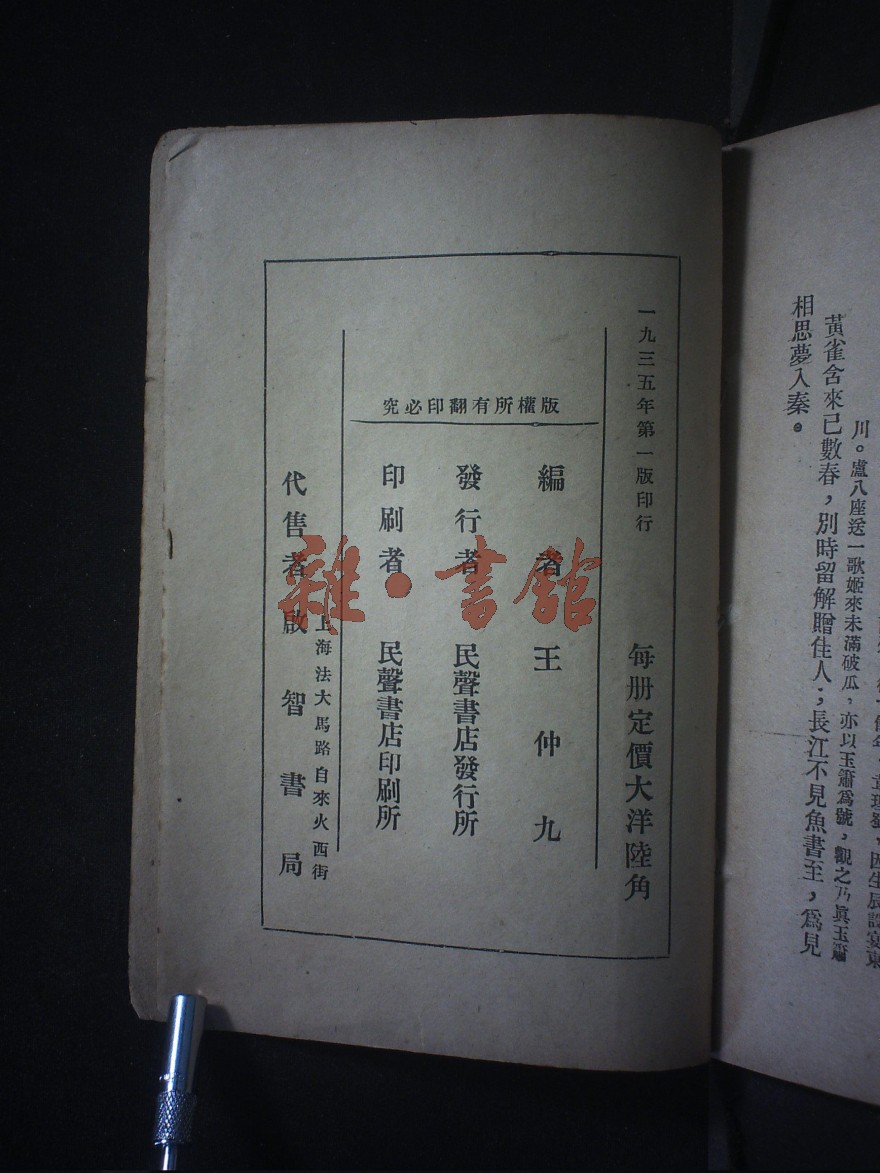 黃雀含來已數春，別時留解贈佳人；長江不見魚書至，爲見
相思夢入秦。
川。盧八座送一歌姬來未滿破瓜，亦以玉簫爲號，觀之乃眞玉簫
一九三五年第一版印行
每册定價大洋陸角
版權所有翻印必究
編者 王仲九
發行者 民聲書店發行所
印刷者 民聲書店印刷所
上海法大馬路自來火西街
代售者 啟智書局
雜·書館